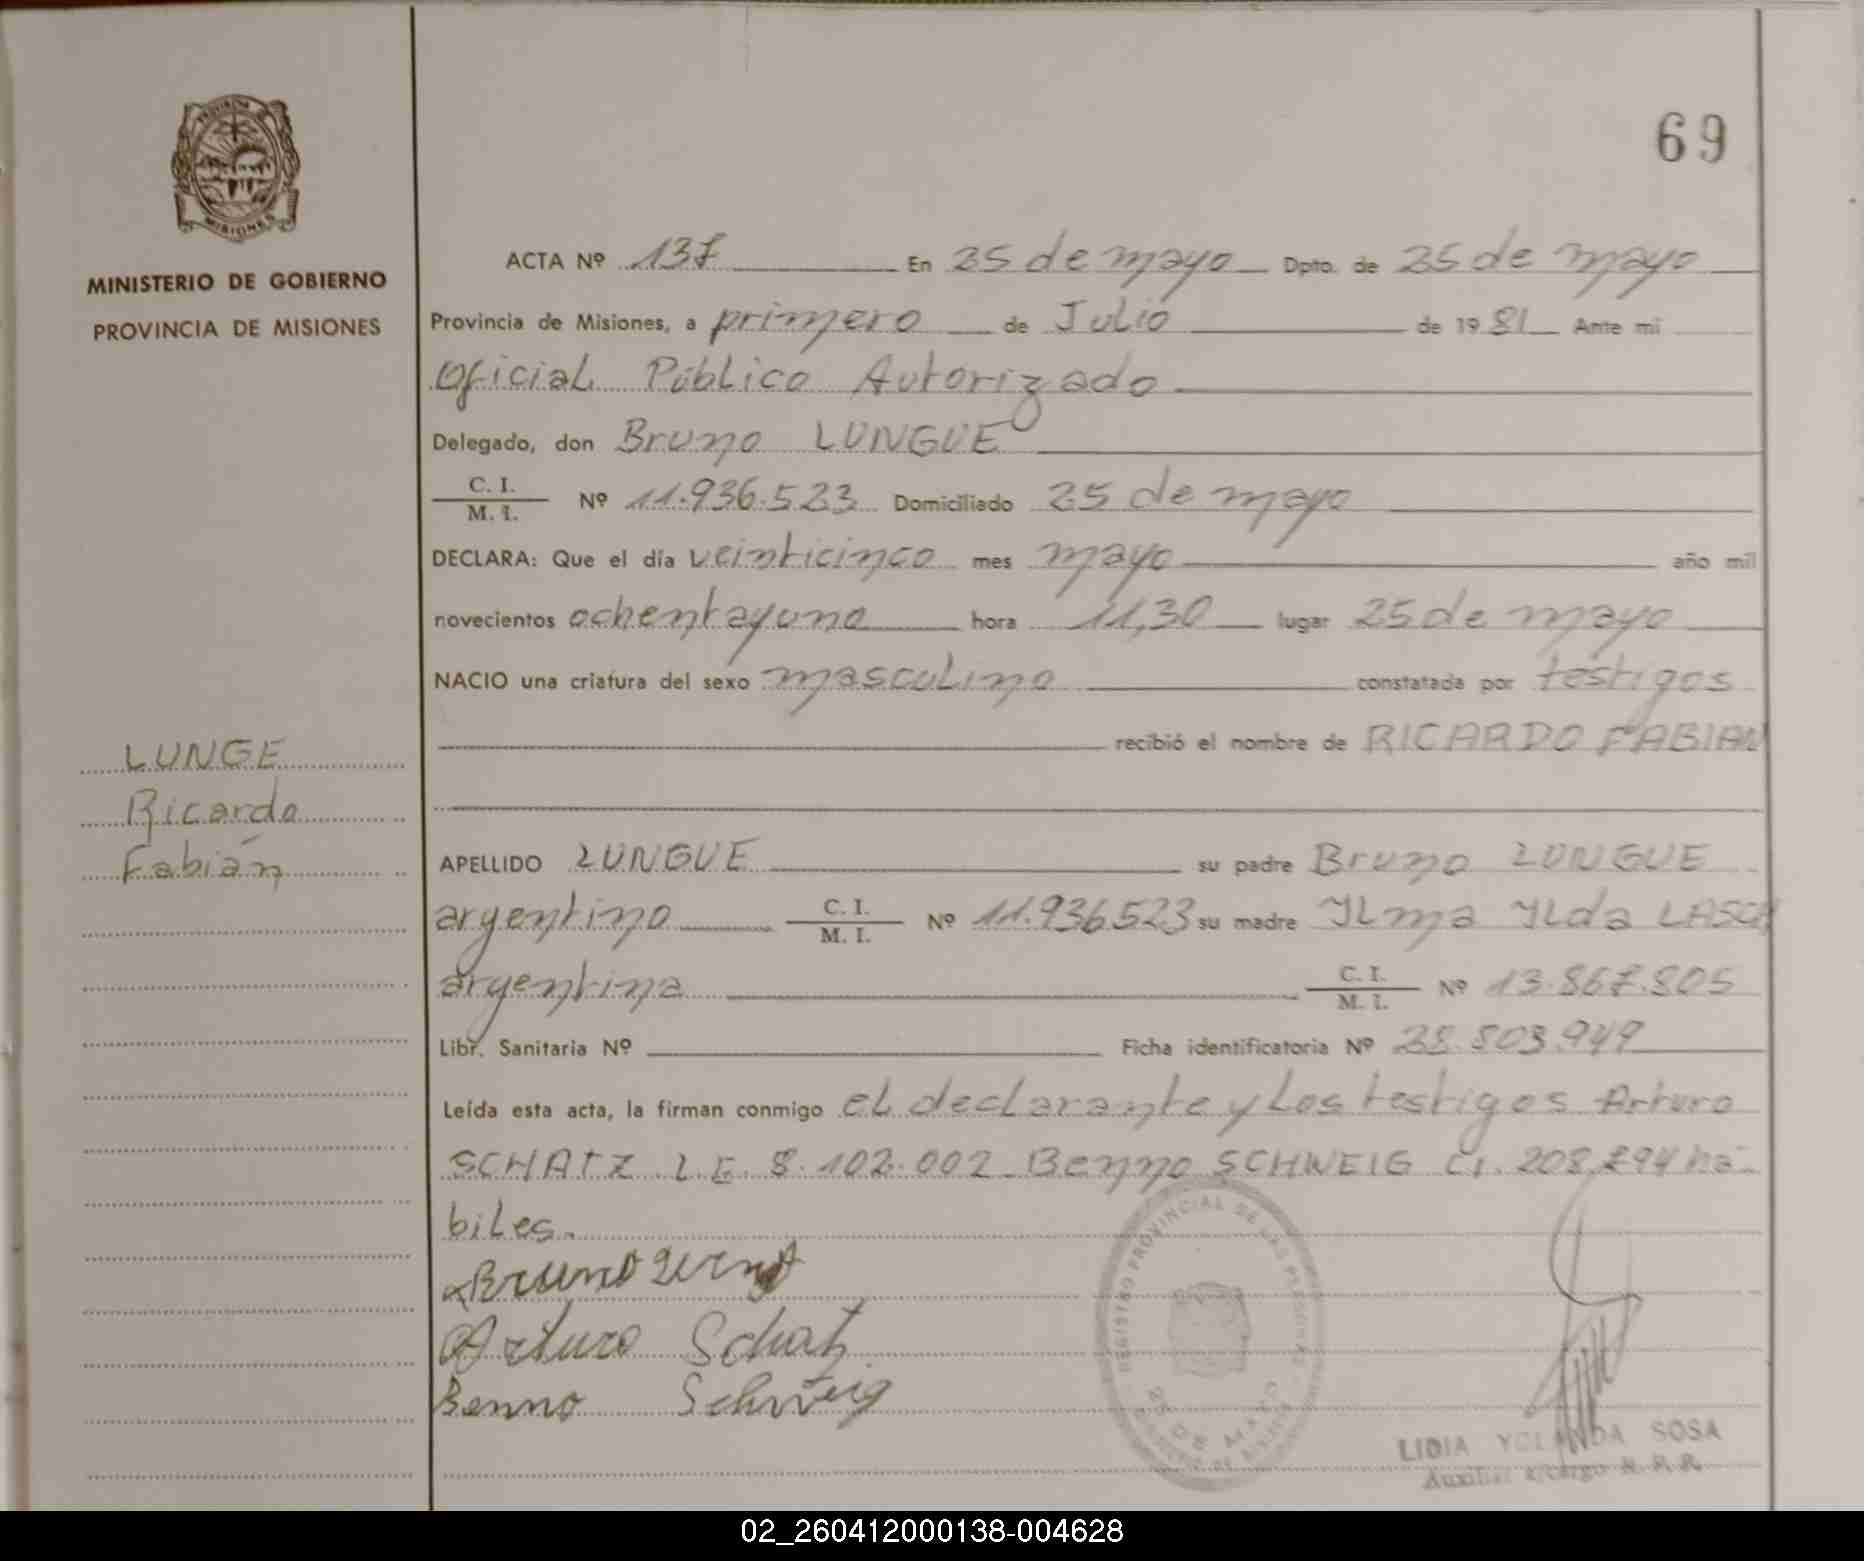 69
PROVINCIA DE
MISIONES
MINISTERIO DE GOBIERNO
PROVINCIA DE MISIONES
LUNGE
Ricardo
Fabián
ACTA Nº 137 En 25 de mayo Dpto. de 25 de mayo
Provincia de Misiones, a primero de Julio de 1981 Ante mi
Oficial Público Autorizado
Delegado, don Bruno LUNGUE
C. I.
M. I. Nº 11.936.523 Domiciliado 25 de mayo
DECLARA: Que el día veinticinco mes mayo año mil
novecientos ochentayuno hora 11,30 lugar 25 de mayo
NACIO una criatura del sexo masculino constatada por testigos
recibió el nombre de RICARDO FABIAN
APELLIDO LUNGUE su padre Bruno LUNGUE
argentino C. I. M. I. Nº 11.936.523 su madre Ylma Ylda LASCH
argentina C. I. M. I. Nº 13.867.805
Libr. Sanitaria Nº Ficha identificatoria Nº 28.803.949
Leída esta acta, la firman conmigo el declarante y los testigos Arturo
SCHATZ L.E. 8.102.002 Benno SCHWEIG C.I. 208.294 há-
biles.
Bruno
Arturo Schatz
Benno Schweig
REGISTRO PROVINCIAL DE LAS PERSONAS
25 DE MAYO
LIDIA YOLANDA SOSA
Auxiliar a/cargo R.P.P.
02_260412000138-004628